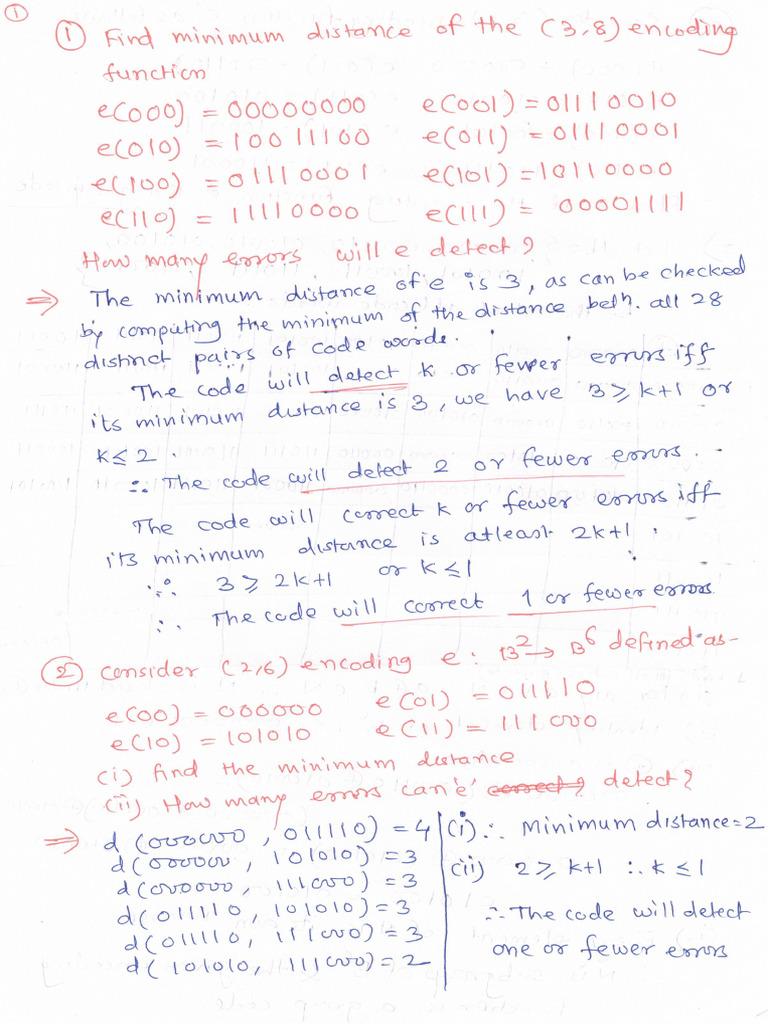 ①
① Find minimum distance of the (3,8) encoding
function
e(000) = 00000000 e(001) = 01110010
e(010) = 10011100 e(011) = 01110001
e(100) = 01110001 e(101) = 10110000
e(110) = 11110000 e(111) = 00001111
How many errors will e detect?
⇒ The minimum distance of e is 3, as can be checked
by computing the minimum of the distance betn. all 28
distinct pairs of code words.
The code will detect k or fewer errors iff
its minimum distance is 3, we have 3 ≥ k+1 or
k ≤ 2
∴ The code will detect 2 or fewer errors.
The code will correct k or fewer errors iff
its minimum distance is atleast 2k+1.
∴ 3 ≥ 2k+1 or k ≤ 1
∴ The code will correct 1 or fewer errors
② Consider (2,6) encoding e : B² → B⁶ defined as-
e(00) = 000000 e(01) = 011110
e(10) = 101010 e(11) = 111000
(i) find the minimum distance
(ii) How many errors can 'e' correct? detect?
⇒ d(000000, 011110) = 4 (i) ∴ Minimum distance = 2
d(000000, 101010) = 3
d(000000, 111000) = 3 (ii) 2 ≥ k+1 ∴ k ≤ 1
d(011110, 101010) = 3
d(011110, 111000) = 3 ∴ The code will detect
d(101010, 111000) = 2 one or fewer errors